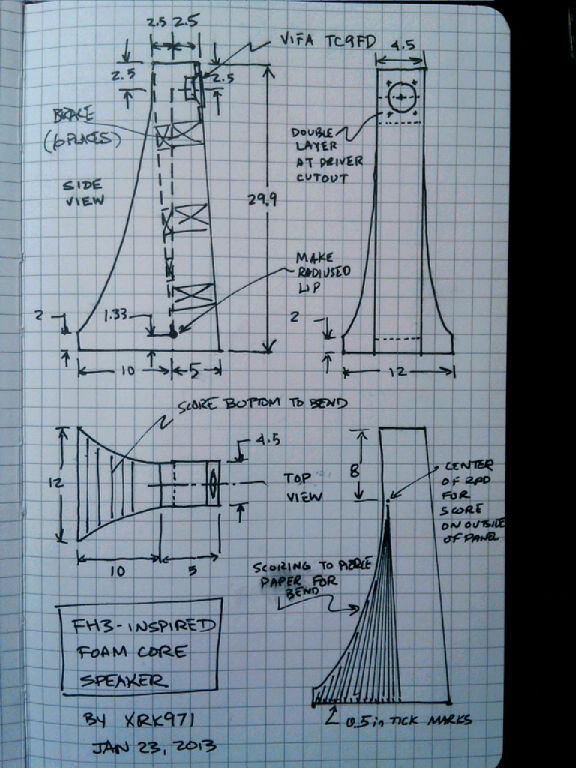 2.5 2.5
VIFA TC9FD
2.5
2.5
BRAKE
(6 PLACES)
SIDE
VIEW
29.9
MAKE
RADIUSED
LIP
2
1.33
10
5
4.5
DOUBLE
LAYER
AT DRIVER
CUTOUT
2
12
SCORE BOTTOM TO BEND
4.5
12
TOP
VIEW
10
5
8
CENTER
OF RAD
FOR
SCORE
ON OUTSIDE
OF PANEL
SCORING TO PIERCE
PAPER FOR
BEND
0.5 in TICK MARKS
FH3-INSPIRED
FOAM CORE
SPEAKER
BY XRK971
JAN 23, 2013